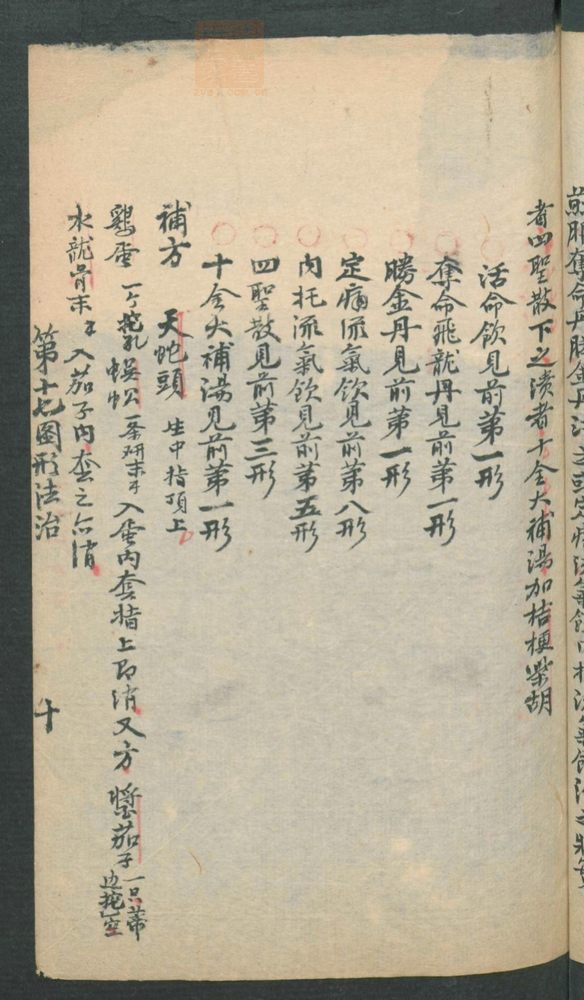 者四聖散下之潰者十全大補湯加桔梗柴胡
活命飲見前第一形
奪命飛龍丹見前第一形
勝金丹見前第一形
定痛流氣飲見前第八形
內托流氣飲見前第五形
四聖散見前第三形
十全大補湯見前第一形
補方 天蛇頭 生中指頂上
鷄蛋一个挖孔 蜈蚣一条研末 入蛋內套指上即消又方 醬茄子一只蒂边挖空
水龍骨末 入茄子內套之亦消
第十七圖形法治 十